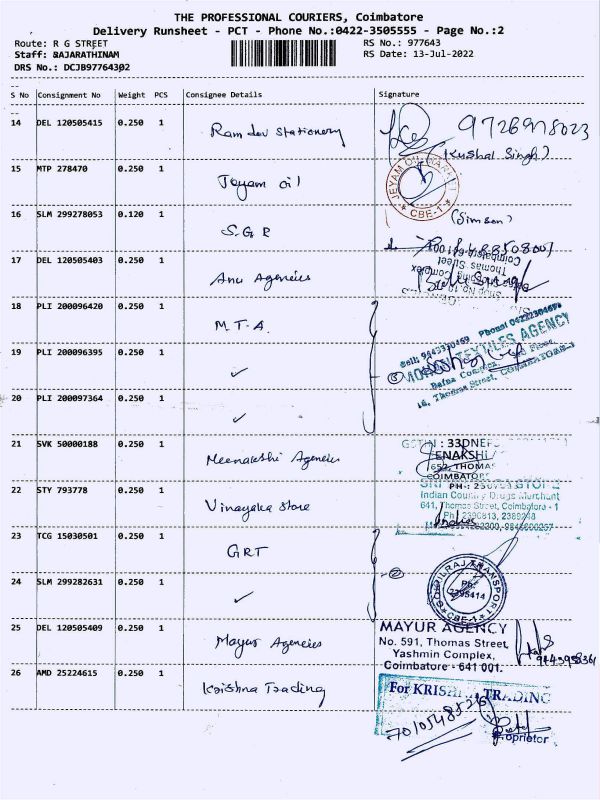 THE PROFESSIONAL COURIERS, Coimbatore
Delivery Runsheet - PCT - Phone No.:0422-3505555 - Page No.:2
Route: R G STREET
RS No.: 977643
Staff: &AJARATHINAM
RS Date: 13-Jul-2022
DRS No.: DCJB97764302
S No Consignment No Weight PCS Consignee Details Signature
14 DEL 120505415 0.250 1 Ram dev Stationery 9726918023
(Kushal Singh)
15 MTP 278470 0.250 1 Jeyam oil
JEYAM OIL
CBE-1
16 SLM 299278053 0.120 1 S.G.R
(Simson)
17 DEL 120505403 0.250 1 Anu Agencies
Thomas Street
18 PLI 200096420 0.250 1 M.T.A.
19 PLI 200096395 0.250 1 ✓ ③
TEXTILES AGENCY
16, Thomas Street,
20 PLI 200097364 0.250 1 ✓
21 SVK 50000188 0.250 1 Meenakshi Agencies
GSTIN : 33DNEF
ENAKSHI
652, THOMAS
COIMBATORE
22 STY 793778 0.250 1 Vinayaka Store
Indian Country Drugs Merchant
641, Thomas Street, Coimbatore - 1
Ph: 2390813, 2389248
23 TCG 15030501 0.250 1 GRT
24 SLM 299282631 0.250 1 ✓ ②
TRANSPORT
Ph:
2395414
CBE-1
25 DEL 120505409 0.250 1 Mayur Agencies
MAYUR AGENCY
No. 591, Thomas Street,
Yashmin Complex,
Coimbatore - 641 001.
26 AMD 25224615 0.250 1 Krishna Trading
For KRISHNA TRADING
7010548526
Proprietor